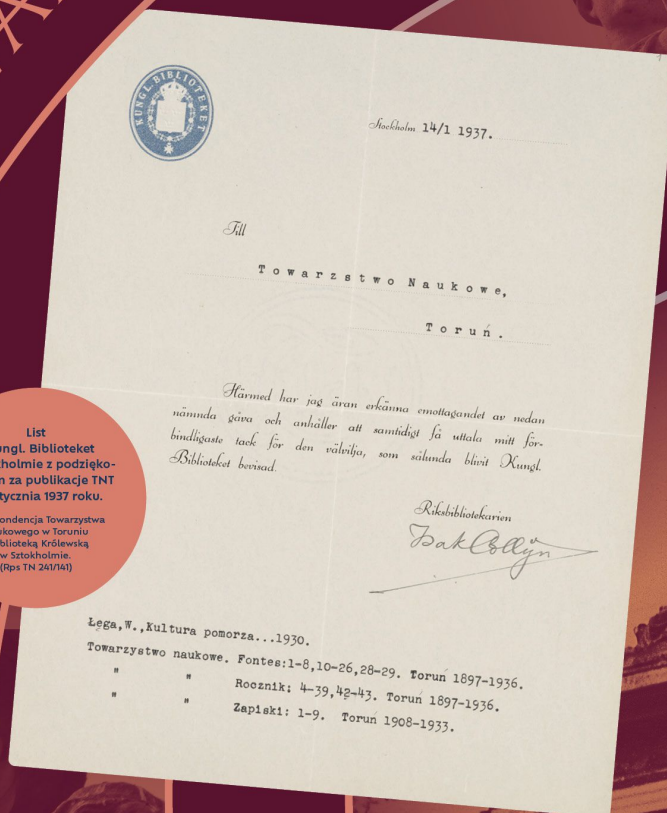 KUNGL. BIBLIOTEKET
Stockholm 14/1 1937.
Till
Towarzstwo Naukowe,
Toruń.
Härmed har jag äran erkänna emottagandet av nedan
nämnda gåva och anhåller att samtidigt få uttala mitt för-
bindligaste tack för den välvilja, som sålunda blivit Kungl.
Biblioteket bevisad.
Riksbibliotekarien
Isak Collijn
Łęga,W.,Kultura pomorza...1930.
Towarzystwo naukowe. Fontes:1-8,10-26,28-29. Toruń 1897-1936.
" " Rocznik; 4-39,42-43. Toruń 1897-1936.
" " Zapiski: 1-9. Toruń 1908-1933.
List
ngl. Biblioteket
holmie z podzięko-
m za publikacje TNT
tycznia 1937 roku.
ondencja Towarzystwa
ukowego w Toruniu
blioteką Królewską
w Sztokholmie.
(Rps TN 241/141)